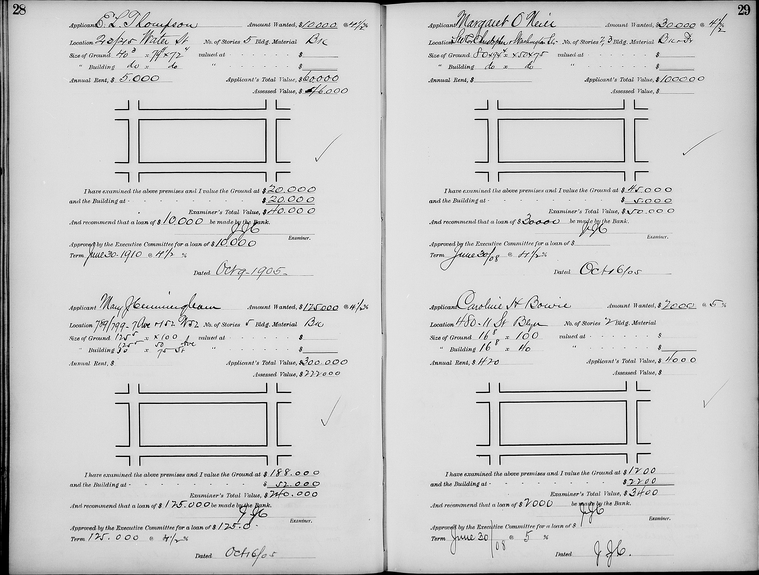 28
Applicant E. L. Thompson Amount Wanted, $10000 @ 4 1/2 %
Location Water St No. of Stories 5 Bldg. Material Brk
Size of Ground valued at $
" Building do x do " $
Annual Rent, $ 5.000 Applicant's Total Value, $60000
Assessed Value, $46000
I have examined the above premises and I value the Ground at $20.000
and the Building at $20.000
Examiner's Total Value, $40.000
And recommend that a loan of $10,000 be made by the Bank.
Examiner.
Approved by the Executive Committee for a loan of $10.000
Term June 30-1910 @ 4 1/2 %
Dated Oct 9-1905
Applicant Mary J Cunningham Amount Wanted, $125000 @ 4 1/2 %
Location 7 Ave No. of Stories 5 Bldg. Material Brk
Size of Ground x 100 valued at $
" Building " $
Annual Rent $ Applicant's Total Value, $300.000
Assessed Value, $222000
I have examined the above premises and I value the Ground at $188.000
and the Building at $52.000
Examiner's Total Value, $240.000
And recommend that a loan of $125.000 be made by the Bank.
Examiner.
Approved by the Executive Committee for a loan of $125.0
Term 125.000 @ 4 1/2 %
Dated Oct 16/05
29
Applicant Margaret O'Neill Amount Wanted, $30.000 @ 4 1/2
Location Christopher Washington No. of Stories 7,3 Bldg. Material
Size of Ground valued at $
" Building do x do " $
Annual Rent, $ Applicant's Total Value, $100000
Assessed Value, $
I have examined the above premises and I value the Ground at $45.000
and the Building at $5.000
Examiner's Total Value, $50.000
And recommend that a loan of $30000 be made by the Bank.
Examiner.
Approved by the Executive Committee for a loan of $
Term June 30/08 @ 4 1/2 %
Dated Oct 16/05
Applicant Caroline H Bowie Amount Wanted, $2000 @ 5 %
Location 480-11 St Bklyn No. of Stories 2 Bldg. Material
Size of Ground 16 8 x 100 valued at $
" Building 16 8 x 40 " $
Annual Rent, $ 420 Applicant's Total Value, $4000
Assessed Value, $
I have examined the above premises and I value the Ground at $1200
and the Building at $2200
Examiner's Total Value, $3400
And recommend that a loan of $2000 be made by the Bank.
Examiner.
Approved by the Executive Committee for a loan of $
Term June 30/08 @ 5 %
Dated